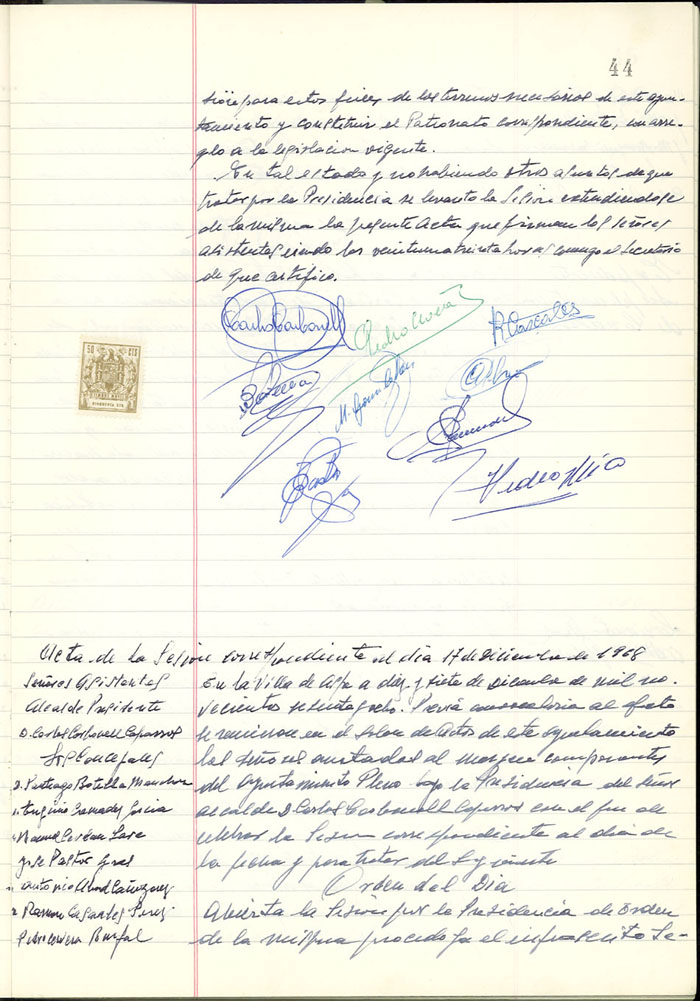 44
para estos fines de los terrenos necesarios de este ayun-
tamiento y constituir el Patronato correspondiente, con arre-
glo a la legislacion vigente.
En tal estado y no habiendo otros asuntos de que
tratar por la Presidencia se levanto la Sesion extendiendose
de la misma la presente Acta que firman los señores
asistentes siendo las veintiuna treinta horas conmigo el Secretario
de que certifico.
Carlos Carbonell
Pedro Cervera
R. Cascales
50 CTS
Pastor
Pedro
Acta de la Sesion correspondiente al dia 17 de Diciembre de 1968
Señores Asistentes
Alcalde Presidente
D. Carlos Carbonell
Sres Concejales
Santiago Botella
Eugenio Gracia
Manuel Cerdan
Jose Pastor
Antonio Abad
Ramon Cascales Perez
Pedro Cervera
En la Villa de Aspe a diez y siete de Diciembre de mil no-
vecientos sesenta y ocho. Previa convocatoria al efecto
se reunieron en el Salon de Actos de este ayuntamiento
los señores anotados al margen componentes
del Ayuntamiento Pleno bajo la Presidencia del Señor
alcalde D. Carlos Carbonell con el fin de
celebrar la Sesion correspondiente al dia de
la fecha y para tratar del Siguiente
Orden del Dia
Abierta la Sesion por la Presidencia de orden
de la misma procedo yo el infrascrito Se-